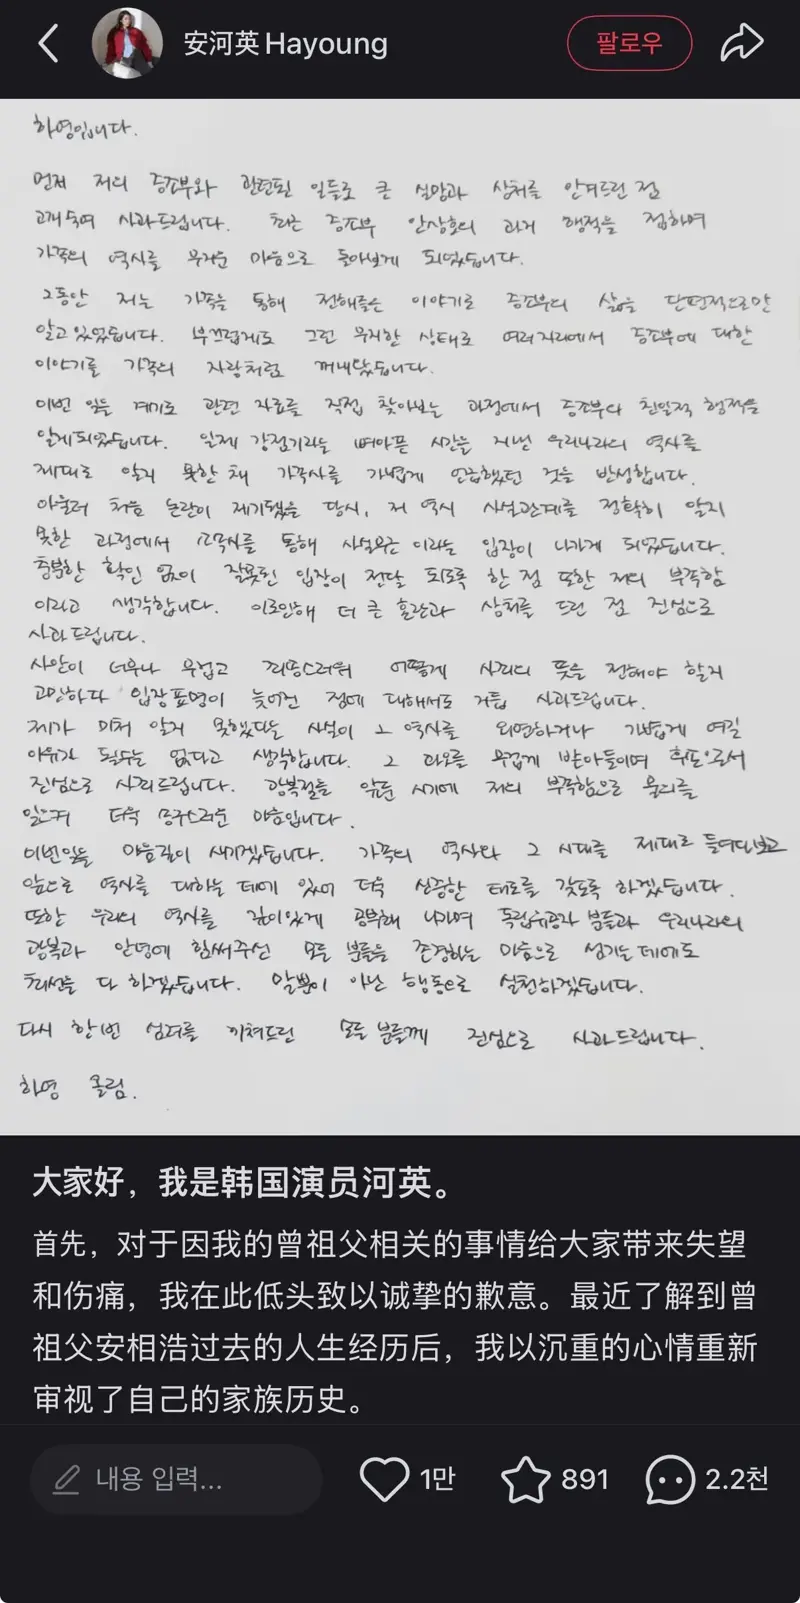 安河英Hayoung
팔로우
하영입니다.
먼저 저의 증조부와 관련된 일들로 큰 실망과 상처를 안겨드린 점
고개숙여 사과드립니다. 최근 증조부 안상호의 과거 행적을 접하며
가족의 역사를 무거운 마음으로 돌아보게 되었습니다.
그동안 저는 가족을 통해 전해들은 이야기로 증조부의 삶을 단편적으로만
알고 있었습니다. 부끄럽게도 그런 무지한 상태로 여러자리에서 증조부에 대한
이야기를 가족의 자랑처럼 꺼내왔습니다.
이번 일을 계기로 관련 자료를 직접 찾아보는 과정에서 증조부의 친일적 행적을
알게되었습니다. 일제 강점기라는 뼈아픈 시간을 지낸 우리나라의 역사를
제대로 알지 못한 채 가족사를 가볍게 언급했던 것을 반성합니다.
아울러 처음 논란이 제기됐을 당시, 저 역시 사실관계를 정확히 알지
못한 과정에서 소속사를 통해 사실무근 이라는 입장이 나가게 되었습니다.
충분한 확인 없이 잘못된 입장이 전달 되도록 한 점 또한 저의 부족함
이라고 생각합니다. 이로인해 더 큰 혼란과 상처를 드린 점 진심으로
사과드립니다.
사안이 너무나 무겁고 죄송스러워 어떻게 사죄의 뜻을 전해야 할지
고민하다 입장표명이 늦어진 점에 대해서도 거듭 사과드립니다.
제가 미처 알지 못했다는 사실이 그 역사를 외면하거나 가볍게 여길
이유가 될수는 없다고 생각합니다. 그 과오를 무겁게 받아들이며 후손으로서
진심으로 사죄드립니다. 광복절을 앞둔 시기에 저의 부족함으로 물의를
일으켜 더욱 송구스러운 마음입니다.
이번일을 마음깊이 새기겠습니다. 가족의 역사와 그 시대를 제대로 들여다보고
앞으로 역사를 대하는 데에 있어 더욱 신중한 태도를 갖도록 하겠습니다.
또한 우리의 역사를 깊이있게 공부해 나가며 독립유공자 분들과 우리나라의
광복과 안녕에 힘써주신 모든 분들을 존경하는 마음으로 섬기는데에도
최선을 다 하겠습니다. 말뿐이 아닌 행동으로 실천하겠습니다.
다시 한번 심려를 끼쳐드린 모든 분들께 진심으로 사과드립니다.
하영 올림.
大家好，我是韩国演员河英。
首先，对于因我的曾祖父相关的事情给大家带来失望
和伤痛，我在此低头致以诚挚的歉意。最近了解到曾
祖父安相浩过去的人生经历后，我以沉重的心情重新
审视了自己的家族历史。
내용 입력...
1만
891
2.2천